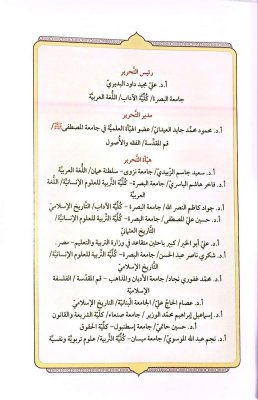 رئيس التَّحرير
أ.د. عليّ مجيد داود البديري
جامعة البصرة/ كُلِّيَّة الآداب/ اللُّغة العربيَّة
مدير التَّحرير
أ.د. محمود محمَّد جايد العيداني/ عضو الهيأة العلميَّة في جامعة المصطفى ﷺ/
قم المقدَّسة/ الفقه والأُصول
هيأة التَّحرير
أ.د. سعيد جاسم الزُّبيديّ/ جامعة نزوى- سلطنة عمان/ اللُّغة العربيَّة
أ.د. فاخر هاشم الياسريّ/ جامعة البصرة- كُلِّيَّة التَّربية للعلوم الإنسانيَّة/ اللُّغة
العربيَّة
أ.د. جواد كاظم النصر الله/ جامعة البصرة- كُلِّيَّة الآداب/ التَّاريخ الإسلاميّ
أ.د. حسين عليّ المصطفى/ جامعة البصرة- كُلِّيَّة التَّربية للعلوم الإنسانيَّة/
التَّاريخ العثمانيّ
أ.د. عليّ أبو الخير/ كبير باحثين متقاعد في وزارة التربية والتعليم- مصر
أ.د. شكري ناصر عبد الحسن/ جامعة البصرة- كُلِّيَّة التَّربية للعلوم الإنسانيَّة/
التَّاريخ الإسلاميّ
أ.د. محمَّد غفوري نجاد/ جامعة الأديان والمذاهب- قم المقدَّسة/ الفلسفة
الإسلاميَّة
أ.د. عصام الحاجّ عليّ/ الجامعة اللبنانيَّة/ التاريخ الإسلاميّ
أ.د. إسماعيل إبراهيم محمَّد الوزير/ جامعة صنعاء/ كليَّة الشريعة والقانون
أ.د. حسين حاتميّ/ جامعة إسطنبول- كليَّة الحقوق
أ.د. نجم عبد الله الموسويّ/ جامعة ميسان- كُلِّيَّة التَّربية/ علوم تربويَّة ونفسيَّة